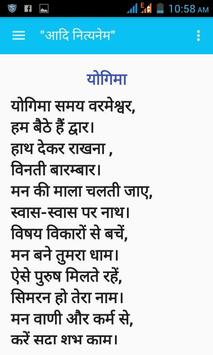 10:58 AM
"आदि नित्यनेम"
योगिमा
योगिमा समय वरमेश्वर,
हम बैठे हैं द्वार।
हाथ देकर राखना ,
विनती बारम्बार।
मन की माला चलती जाए,
स्वास-स्वास पर नाथ।
विषय विकारों से बचें,
मन बने तुमरा धाम।
ऐसे पुरुष मिलते रहें,
सिमरन हो तेरा नाम।
मन वाणी और कर्म से,
करें सदा शुभ काम।